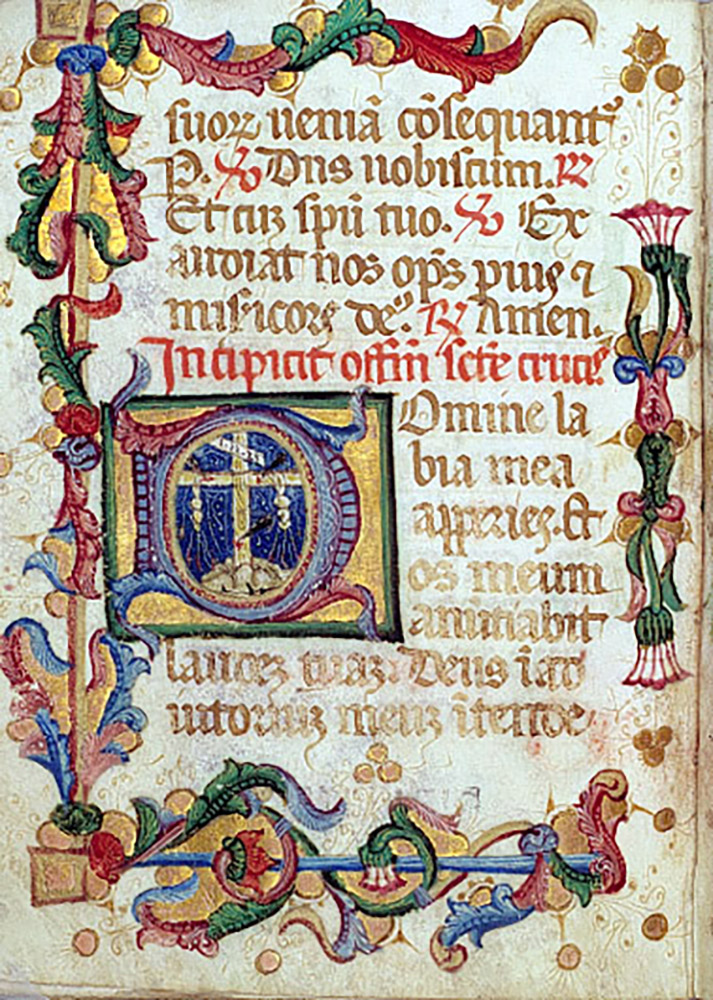 suoꝝ ueniā cōsequant᷑
P. ℣ Dn̄s uobiscum. ℟
Et cuꝫ spū tuo. ℣ Ex
audiat nos op̄s pius ⁊
mis̄icors deꝰ. ℟ Amen.
Incipicit offm̄ scte crucis.
Domine la
bia mea
apperies. Et
os meum
anūtiabit
laudeꝫ tuaꝫ Deus ī ad
iutoriuꝫ meuꝫ ītende